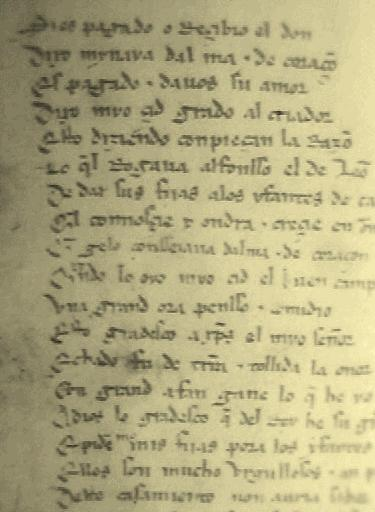 pagado o Reçibio el don
Dixo mynaya dal ma · de coraçõ
Es pagado · dauos su amor
Dixo myo çid grado al criador
Esto diziendo conpieçan la Razõ
Lo q̃l Rogaua alfonsso el de Leõ
De dar sus fijas alos yfantes de ca
Q̃l connosçie y ondra · creçie en
Q̃ gelo conseiaua dalma · de coraçon
Q̃ndo lo oyo myo çid el buen camp
Vna grand ora penssó · comidio
Esto gradesco a xp̃s el myo señor
Echado fu de tr̃ra · tollida la onor
Con grand afan gane lo q̃ he yo
A dios lo gradesco q̃ del Rey he su g̃
E pidẽ mis fijas pora los yfantes
Ellos son mucho vrgullosos · an p
Deste casamiento non auria sabor